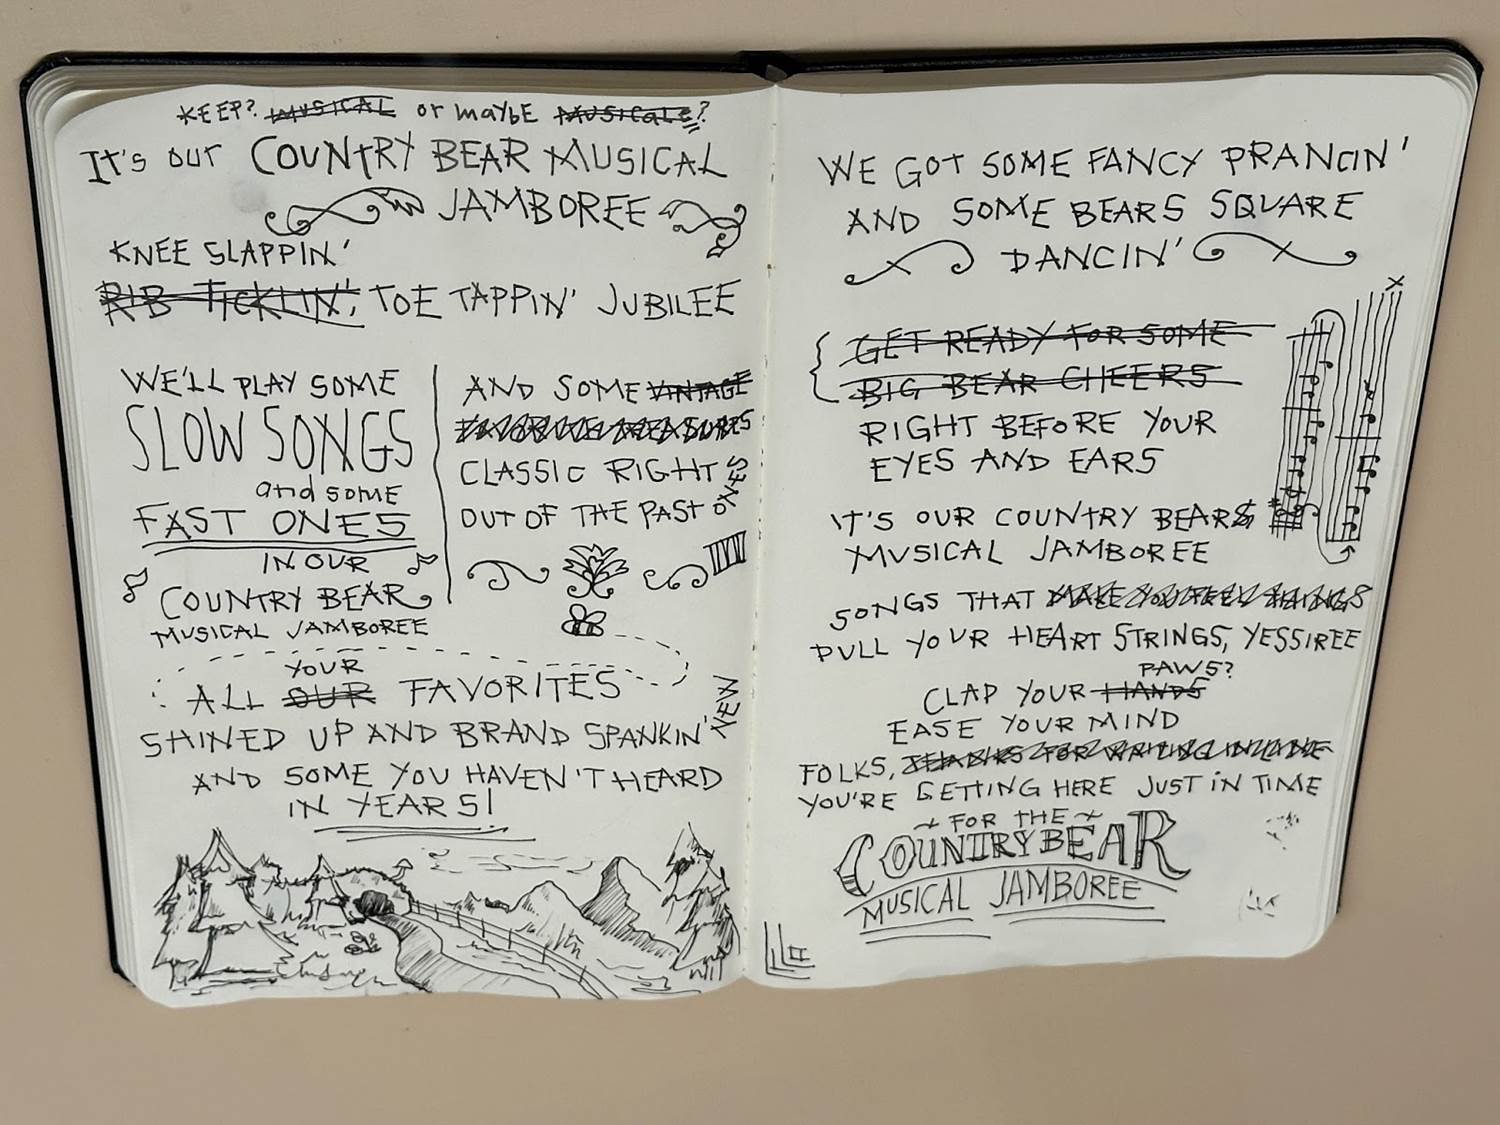 KEEP? MUSICAL or maybe MUSICALE?
IT'S OUR COUNTRY BEAR MUSICAL
JAMBOREE
KNEE SLAPPIN'
RIB TICKLIN', TOE TAPPIN' JUBILEE
WE'LL PLAY SOME
SLOW SONGS
and some
FAST ONES
IN OUR
COUNTRY BEAR
MUSICAL JAMBOREE
AND SOME VINTAGE
CLASSIC RIGHT
OUT OF THE PAST ONES
YOUR
ALL OUR FAVORITES
SHINED UP AND BRAND SPANKIN' NEW
AND SOME YOU HAVEN'T HEARD
IN YEARS!
WE GOT SOME FANCY PRANCIN'
AND SOME BEARS SQUARE
DANCIN'
GET READY FOR SOME
BIG BEAR CHEERS
RIGHT BEFORE YOUR
EYES AND EARS
IT'S OUR COUNTRY BEAR
MUSICAL JAMBOREE
SONGS THAT MAKE YOU FEEL THINGS
PULL YOUR HEART STRINGS, YESSIREE
PAWS?
CLAP YOUR HANDS
EASE YOUR MIND
FOLKS, THANKS FOR WAITING IN LINE
YOU'RE GETTING HERE JUST IN TIME
~ FOR THE ~
COUNTRY BEAR
MUSICAL JAMBOREE